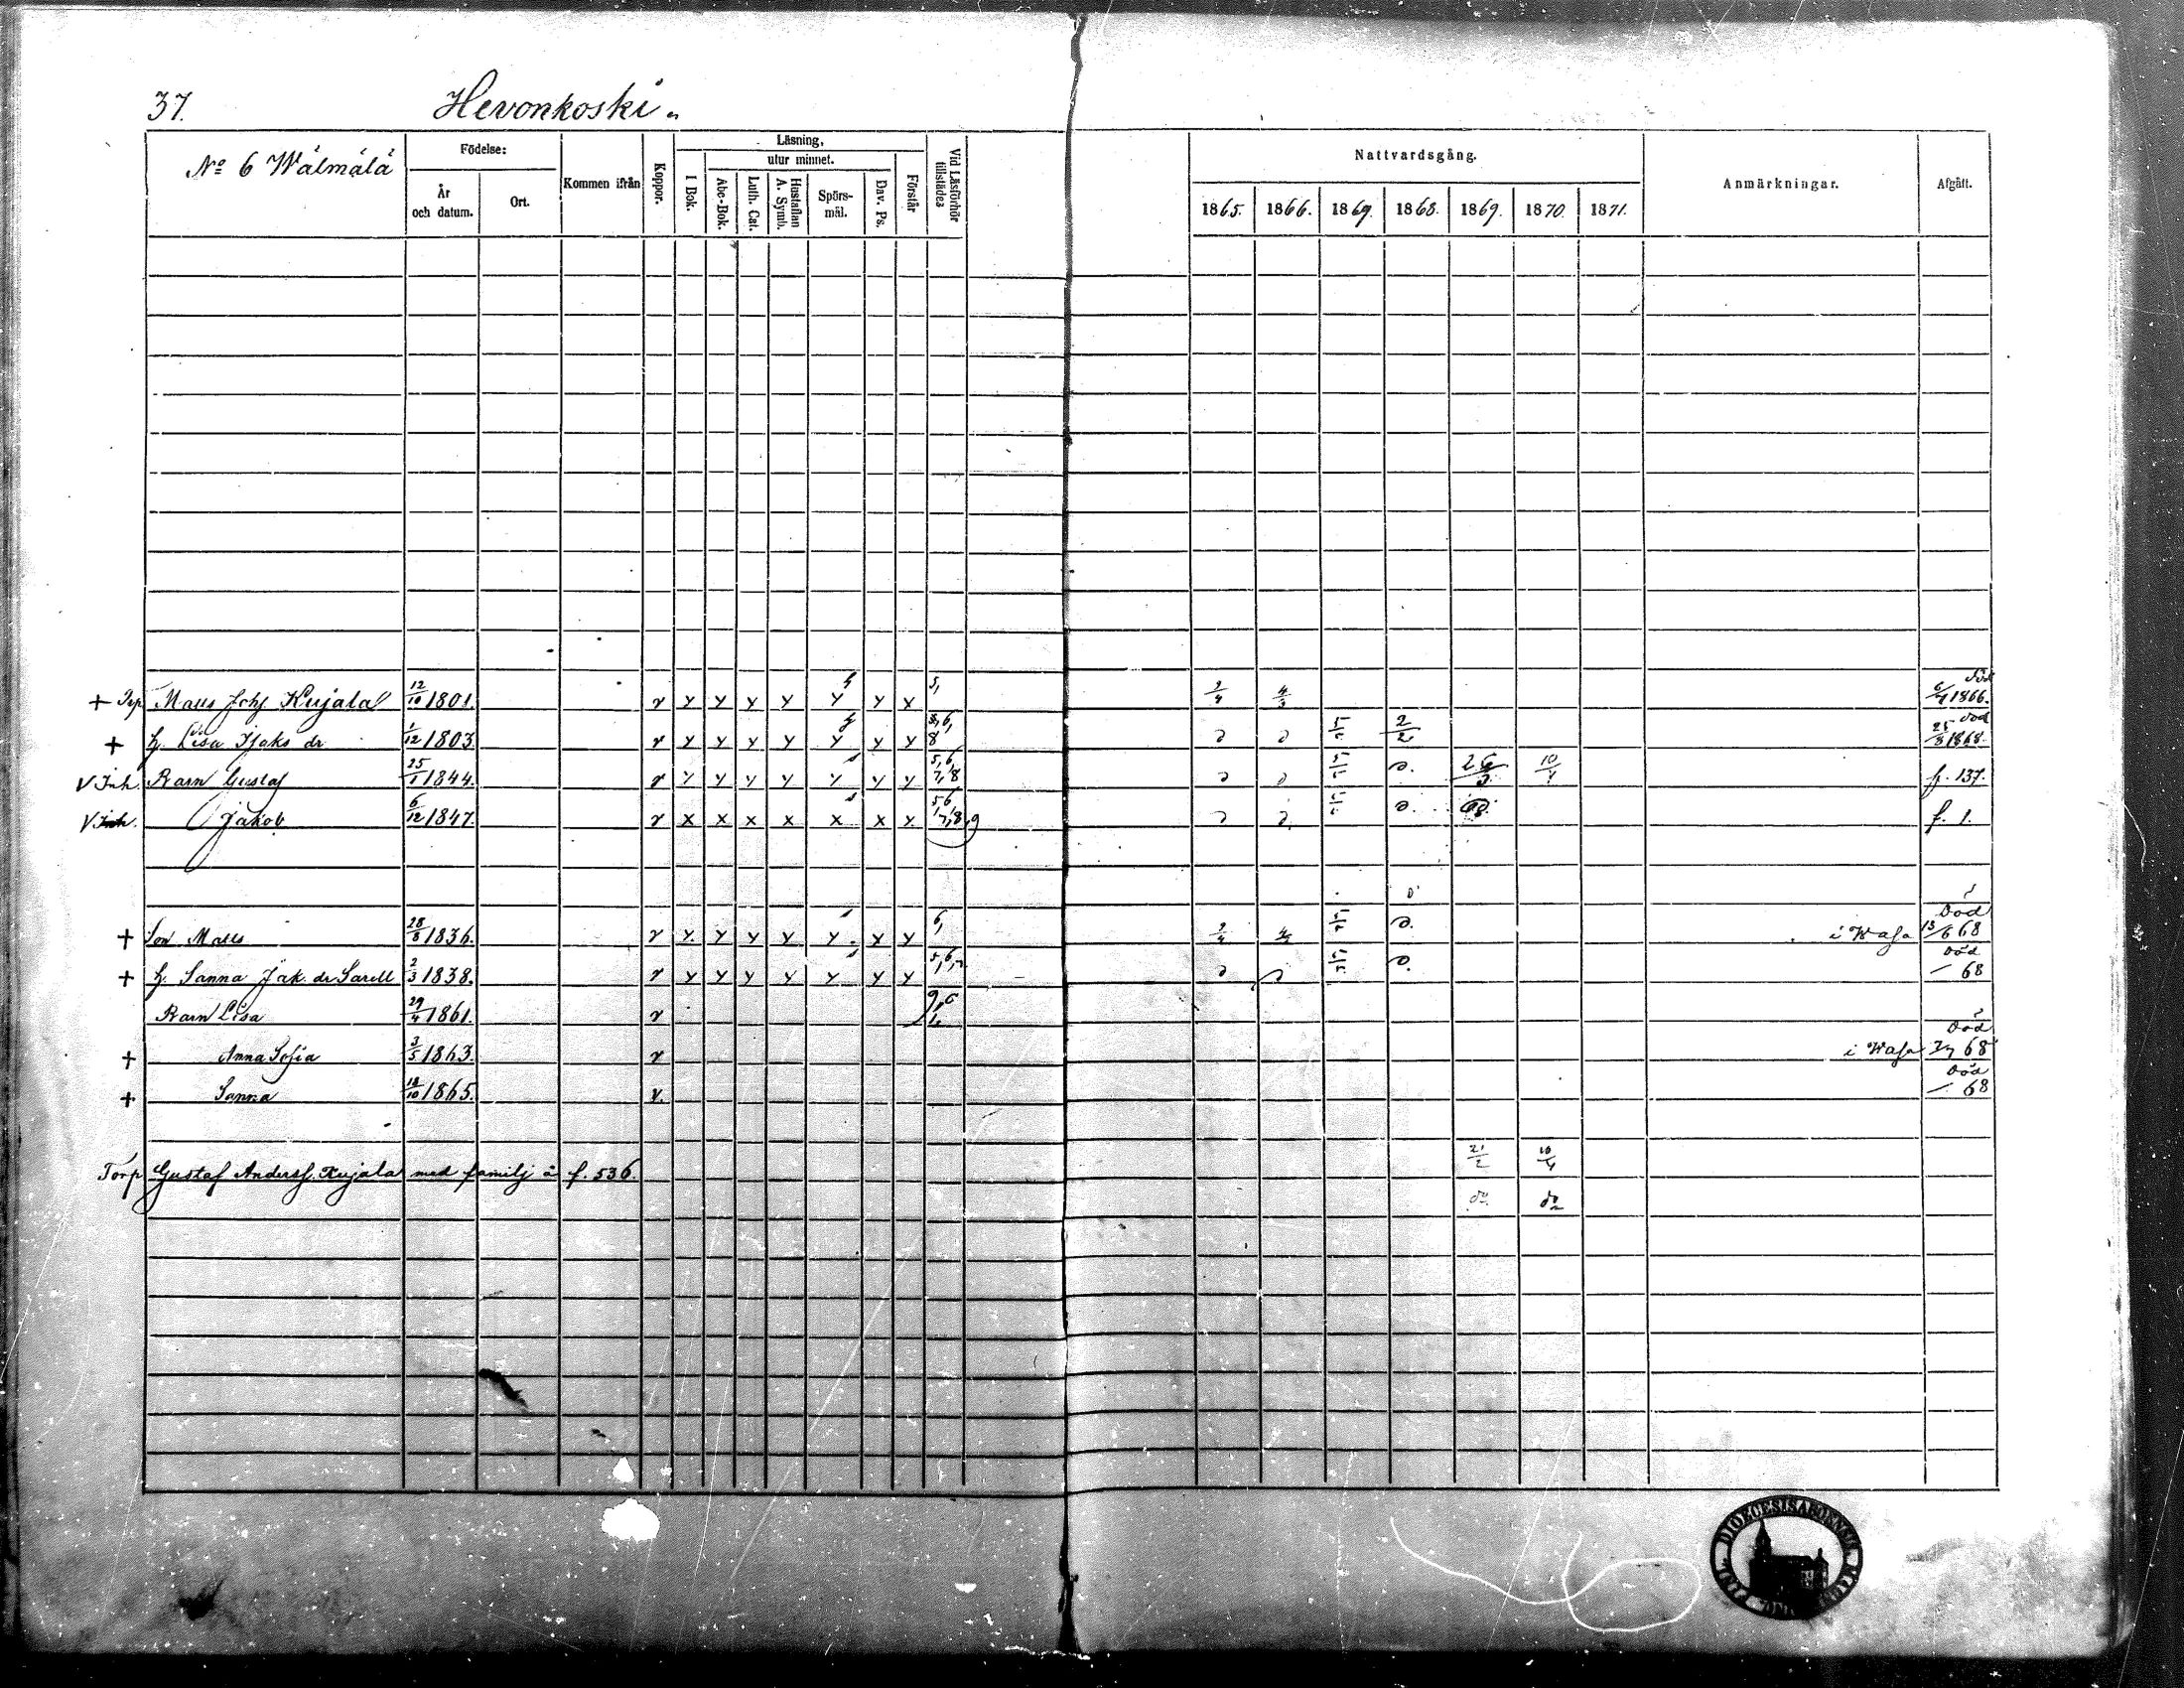 37. Hevonkoski.
Nattvardsgång.
Anmärkningar.
Afgått.
No 6 Wälmälä
Födelse:
År och datum.
Ort.
Kommen ifrån
Koppor.
Läsning,
I Bok.
utur minnet.
Abc-Bok.
Luth. Cat.
Hustaflan A. Symb.
Spörsmål.
Dav. Ps.
Förstår
Vid Läsförhör tillstädes
1865. 1866. 1867. 1868. 1869. 1870. 1871.
+ Torp Matts Johs Kujala 12/10 1801. v y y y y y y x 5, död 6/4 1866.
+ h. Lisa Isaks dr 1/12 1803. v y y y y y y y 8 5/5 2/2 död 25/8 1868.
V Inh. Barn Gustaf 25/1 1844. v y y y y y y y 5,6, 7,8 5/5 10/4 f. 137.
V Inh. Jakob 6/12 1847. v x x x x x x y 5,6 7,8,9 5/5 f. 1.
+ Son Matts 28/8 1836. v y y y y y x y 6, 5/5 i Wasa Död 13/6 68
+ h. Sanna Jak. dr Sarell 2/3 1838. v y y y y y y y 5,6,7 5/5 Död 68
Barn Lisa 29/4 1861. v
+ Anna Sofia 3/5 1863. v i Wasa Död 68
+ Sanna 18/10 1865. v. Död 68
Torp Gustaf Anderss. Kujala med familj å f. 536. 21/2 10/4
do. do